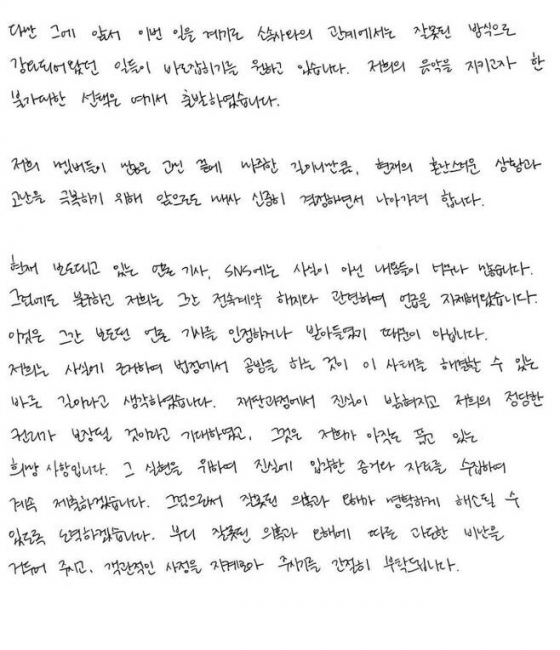 다만 그에 앞서 이번 일을 계기로 소속사와의 관계에서는 잘못된 방식으로
강요되어왔던 일들이 바로잡히기를 원하고 있습니다. 저희의 음악을 지키고자 한
불가피한 선택은 여기서 출발하였습니다.
저희 멤버들이 많은 고민 끝에 마주한 길이니만큼, 현재의 혼란스러운 상황과
고난을 극복하기 위해 앞으로도 매사 신중히 걱정하면서 나아가려 합니다.
현재 보도되고 있는 언론 기사, SNS에는 사실이 아닌 내용들이 너무나 많습니다.
그럼에도 불구하고 저희는 그간 전속계약 해지와 관련하여 언급을 자제해왔습니다.
이것은 그간 보도된 언론 기사를 인정하거나 받아들였기 때문이 아닙니다.
저희는 사실에 근거하여 법정에서 공방을 하는 것이 이 사태를 해명할 수 있는
바른 길이라고 생각하였습니다. 재판과정에서 진실이 밝혀지고 저희의 정당한
권리가 보장될 것이라고 기대하였고, 그것은 저희가 아직도 품고 있는
희망 사항입니다. 그 실현을 위하여 진실에 입각한 증거와 자료를 수집하여
계속 제출하겠습니다. 그럼으로써 잘못된 의혹과 오해가 명확하게 해소될 수
있도록 노력하겠습니다. 부디 잘못된 의혹과 오해에 따른 과도한 비난을
거두어 주시고, 객관적인 사정을 지켜보아 주시기를 간절히 부탁드립니다.